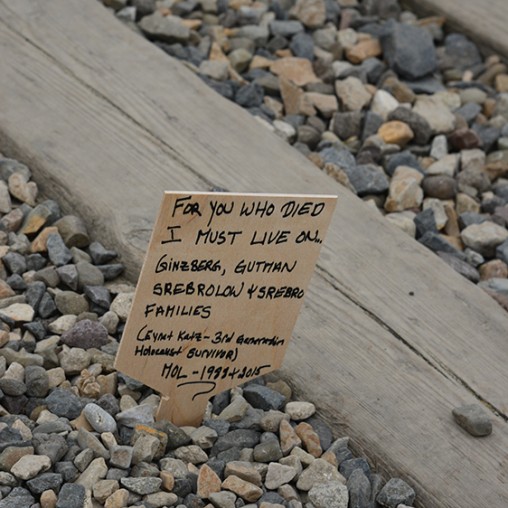 FOR YOU WHO DIED
I MUST LIVE ON..
GINZBERG, GUTMAN
SREBROLOW & SREBRO
FAMILIES
(Eynat Katz - 3rd Generation
Holocaust SURVIVOR)
MOL - & 2015